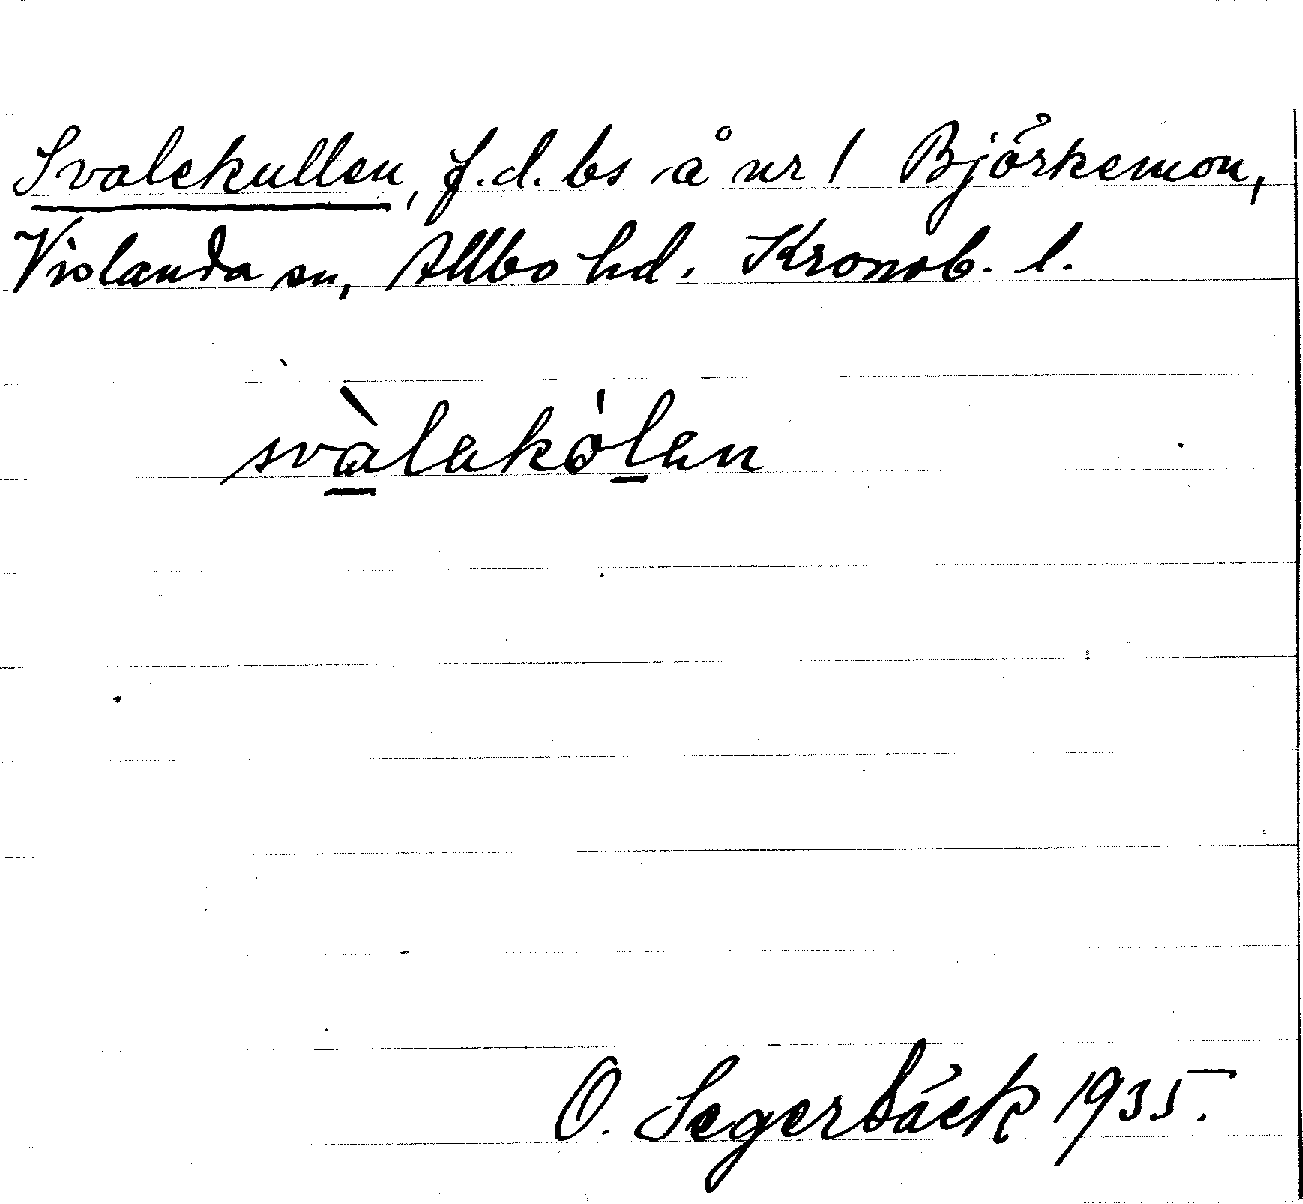 Svalekullen, f.d. bs å nr 1 Björkemon,
Vislanda sn, Allbo hd. Kronob. l.
svàlakólan
O. Segerbäck 1935.